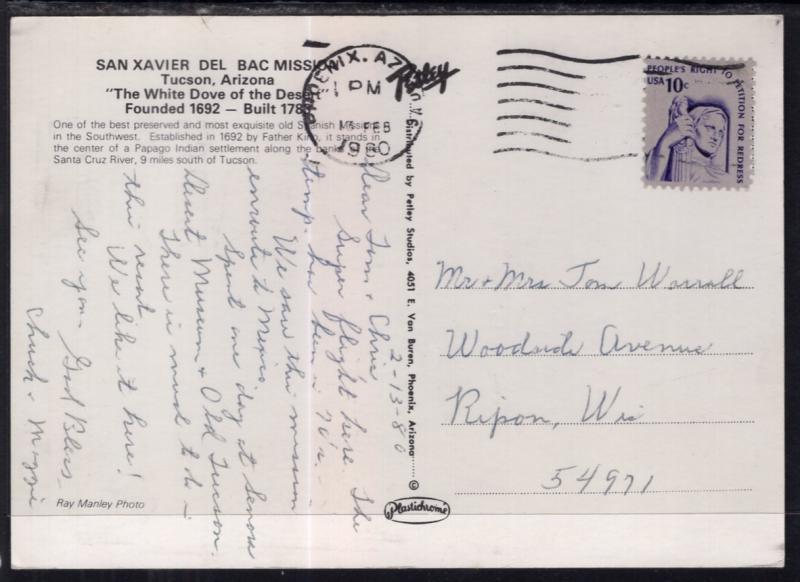 SAN XAVIER DEL BAC MISSION
Tucson, Arizona
"The White Dove of the Desert"
Founded 1692 — Built 178
One of the best preserved and most exquisite old Spanish Missions
in the Southwest. Established in 1692 by Father Kino, it stands in
the center of a Papago Indian settlement along the banks of the
Santa Cruz River, 9 miles south of Tucson.
PHOENIX, AZ
1 PM
13 FEB
1980
Petley
PEOPLE'S RIGHT TO PETITION FOR REDRESS
USA 10c
2-13-80
Dear Tom & Chris
Super flight here. The
temp. has been in 70's. -
We saw this museum
enroute to Mexico
Spent one day at Sonora
Desert Museum & Old Tucson.
There is much to do -
this resort
We like it here!
See you. God Bless.
Chuck & Maggie
Ray Manley Photo
Distributed by Petley Studios, 4051 E. Van Buren, Phoenix, Arizona
©
Plastichrome
Mr & Mrs Tom Worrall
Woodside Avenue
Ripon, Wis
54971